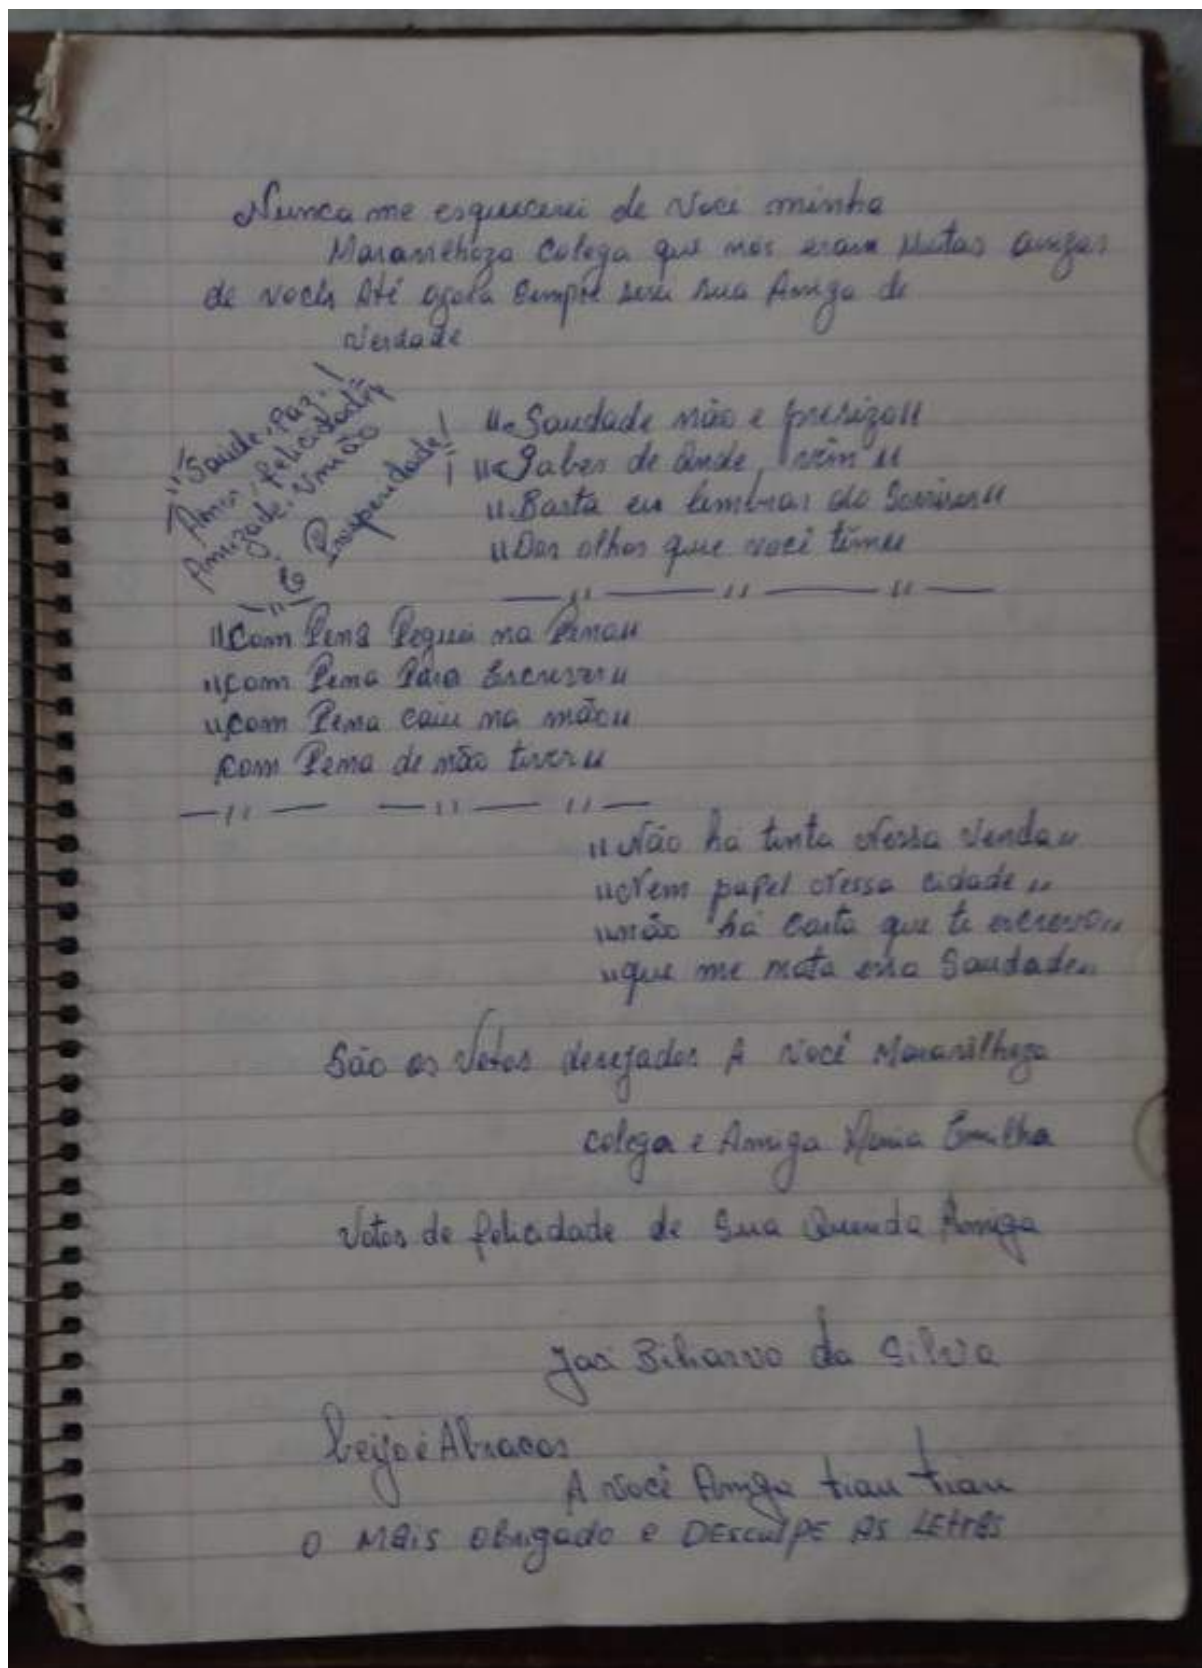 Nunca me esquecerei de Você minha
Maravilhoza Colega que nós eram Muitas amigas
de vocês Até agora Sempre serei sua Amiga de
Verdade
"Saúde, Paz!
Amor, felicidade,
Amizade, União
e Prosperidade!
"Saudade não e presizo"
"Saber de Onde, vêm"
"Basta eu lembrar do Sorriso"
"Dos olhos que você têm"
"Com Pena Peguei na Pena"
"Com Pena Para Escrever"
"Com Pena caiu na mão"
Com Pena de não ti ver"
"Não há tinta Nessa Venda"
"Nem papel Nessa cidade"
"não há carta que te escrevo"
"que me mata essa Saudade"
São os Votos desejados A Você Maravilhoza
colega e Amiga Maria Emilha
Votos de felicidade de Sua Querida Amiga
da Silva
beijo e Abraços
A você Amiga tiau tiau
O MAis Obrigado e DEsculpE AS LEtrAS